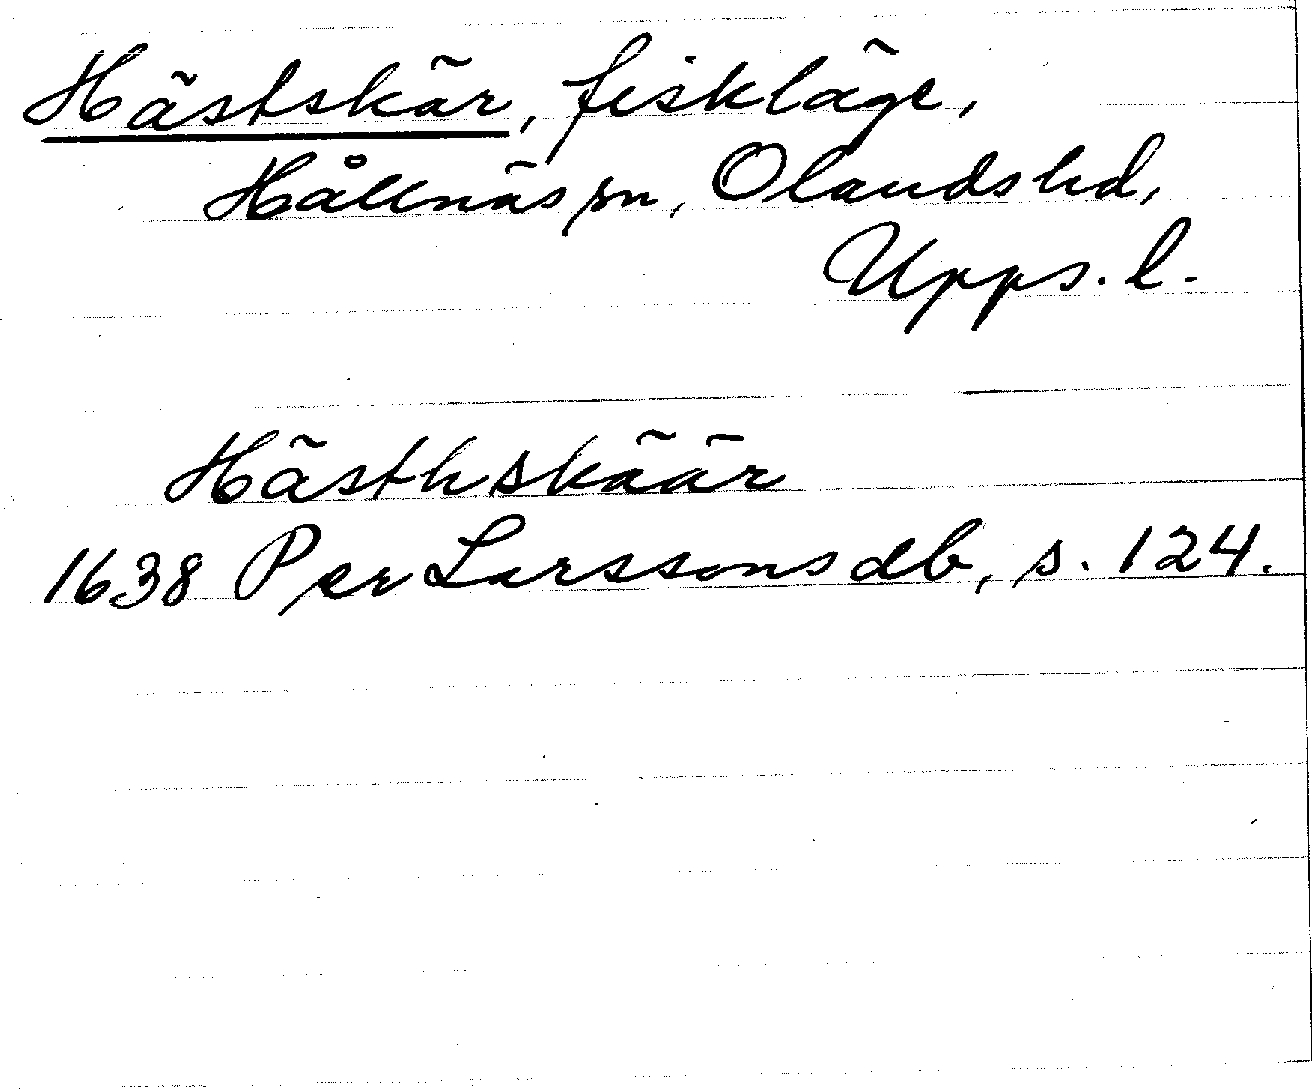 Hästskär, fiskläge,
Hållnäs sn, Olands hd,
Upps. l.
Hästhskäär
1638 Per Larssons db, s. 124.